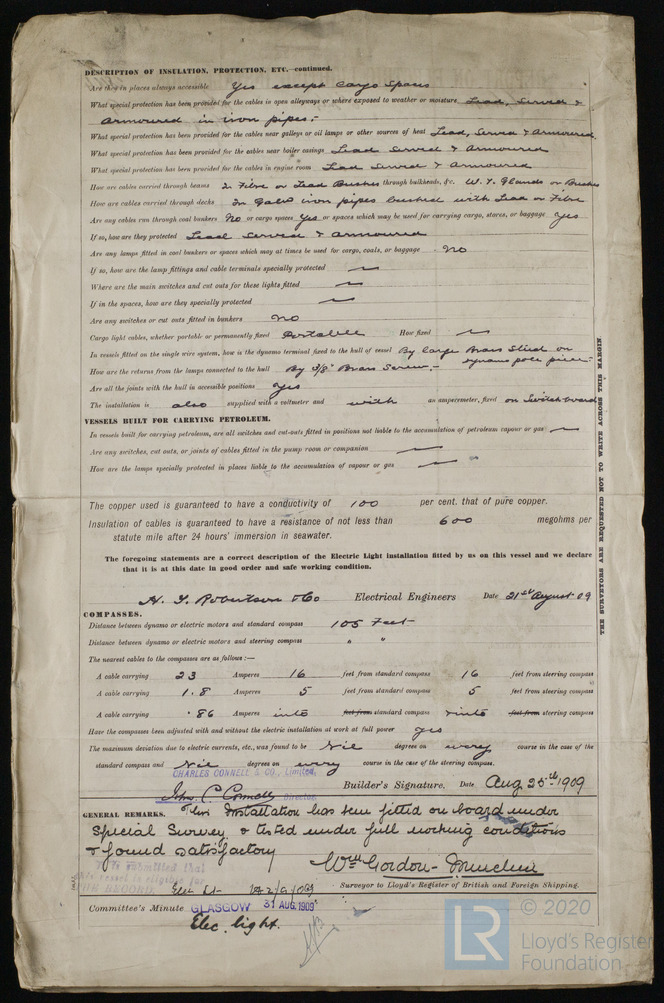 DESCRIPTION OF INSULATION, PROTECTION, ETC.—continued.
Are they in places always accessible Yes except Cargo Spaces
What special protection has been provided for the cables in open alleyways or where exposed to weather or moisture Lead, Served &
Armoured in iron pipes:-
What special protection has been provided for the cables near galleys or oil lamps or other sources of heat Lead, Served & Armoured.
What special protection has been provided for the cables near boiler casings Lead Served & Armoured
What special protection has been provided for the cables in engine room Lead Served & Armoured
How are cables carried through beams In Fibre or Lead Bushes through bulkheads, &c. W. T. Glands or Bushes
How are cables carried through decks In Galvd iron pipes bushed with Lead or Fibre
Are any cables run through coal bunkers No or cargo spaces Yes or spaces which may be used for carrying cargo, stores, or baggage yes
If so, how are they protected Lead Served & Armoured
Are any lamps fitted in coal bunkers or spaces which may at times be used for cargo, coals, or baggage No
If so, how are the lamp fittings and cable terminals specially protected
Where are the main switches and cut outs for these lights fitted
If in the spaces, how are they specially protected
Are any switches or cut outs fitted in bunkers No
Cargo light cables, whether portable or permanently fixed Portable How fixed
In vessels fitted on the single wire system, how is the dynamo terminal fixed to the hull of vessel By large Brass Stud on
dynamo pole piece:-
How are the returns from the lamps connected to the hull By 3/8" Brass Screw.-
Are all the joints with the hull in accessible positions yes
The installation is also supplied with a voltmeter and with an amperemeter, fixed on Switchboard
VESSELS BUILT FOR CARRYING PETROLEUM.
In vessels built for carrying petroleum, are all switches and cut-outs fitted in positions not liable to the accumulation of petroleum vapour or gas
Are any switches, cut outs, or joints of cables fitted in the pump room or companion
How are the lamps specially protected in places liable to the accumulation of vapour or gas
THE SURVEYORS ARE REQUESTED NOT TO WRITE ACROSS THIS MARGIN.
The copper used is guaranteed to have a conductivity of 100 per cent. that of pure copper.
Insulation of cables is guaranteed to have a resistance of not less than 600 megohms per
statute mile after 24 hours' immersion in seawater.
The foregoing statements are a correct description of the Electric Light installation fitted by us on this vessel and we declare
that it is at this date in good order and safe working condition.
Robertson & Co Electrical Engineers Date 21st August 09
COMPASSES.
Distance between dynamo or electric motors and standard compass 105 Feet
Distance between dynamo or electric motors and steering compass " "
The nearest cables to the compasses are as follows:—
A cable carrying 23 Amperes 16 feet from standard compass 16 feet from steering compass
A cable carrying 1.8 Amperes 5 feet from standard compass 5 feet from steering compass
A cable carrying .86 Amperes into feet from standard compass into feet from steering compass
Have the compasses been adjusted with and without the electric installation at work at full power yes
The maximum deviation due to electric currents, etc., was found to be Nil degrees on every course in the case of the
standard compass and Nil degrees on every course in the case of the steering compass.
CHARLES CONNELL & CO., Limited,
John C. Connell Director. Builder's Signature. Date Aug 25th 1909
GENERAL REMARKS. This Installation has been fitted on board under
Special Survey & tested under full working conditions
& found satisfactory
Wm Gordon-
Surveyor to Lloyd's Register of British and Foreign Shipping.
It is submitted that
this vessel is eligible for
THE RECORD.
Elec Lt.
Committee's Minute GLASGOW 31 AUG. 1909
Elec. light.
LR
© 2020
Lloyd's Register
Foundation